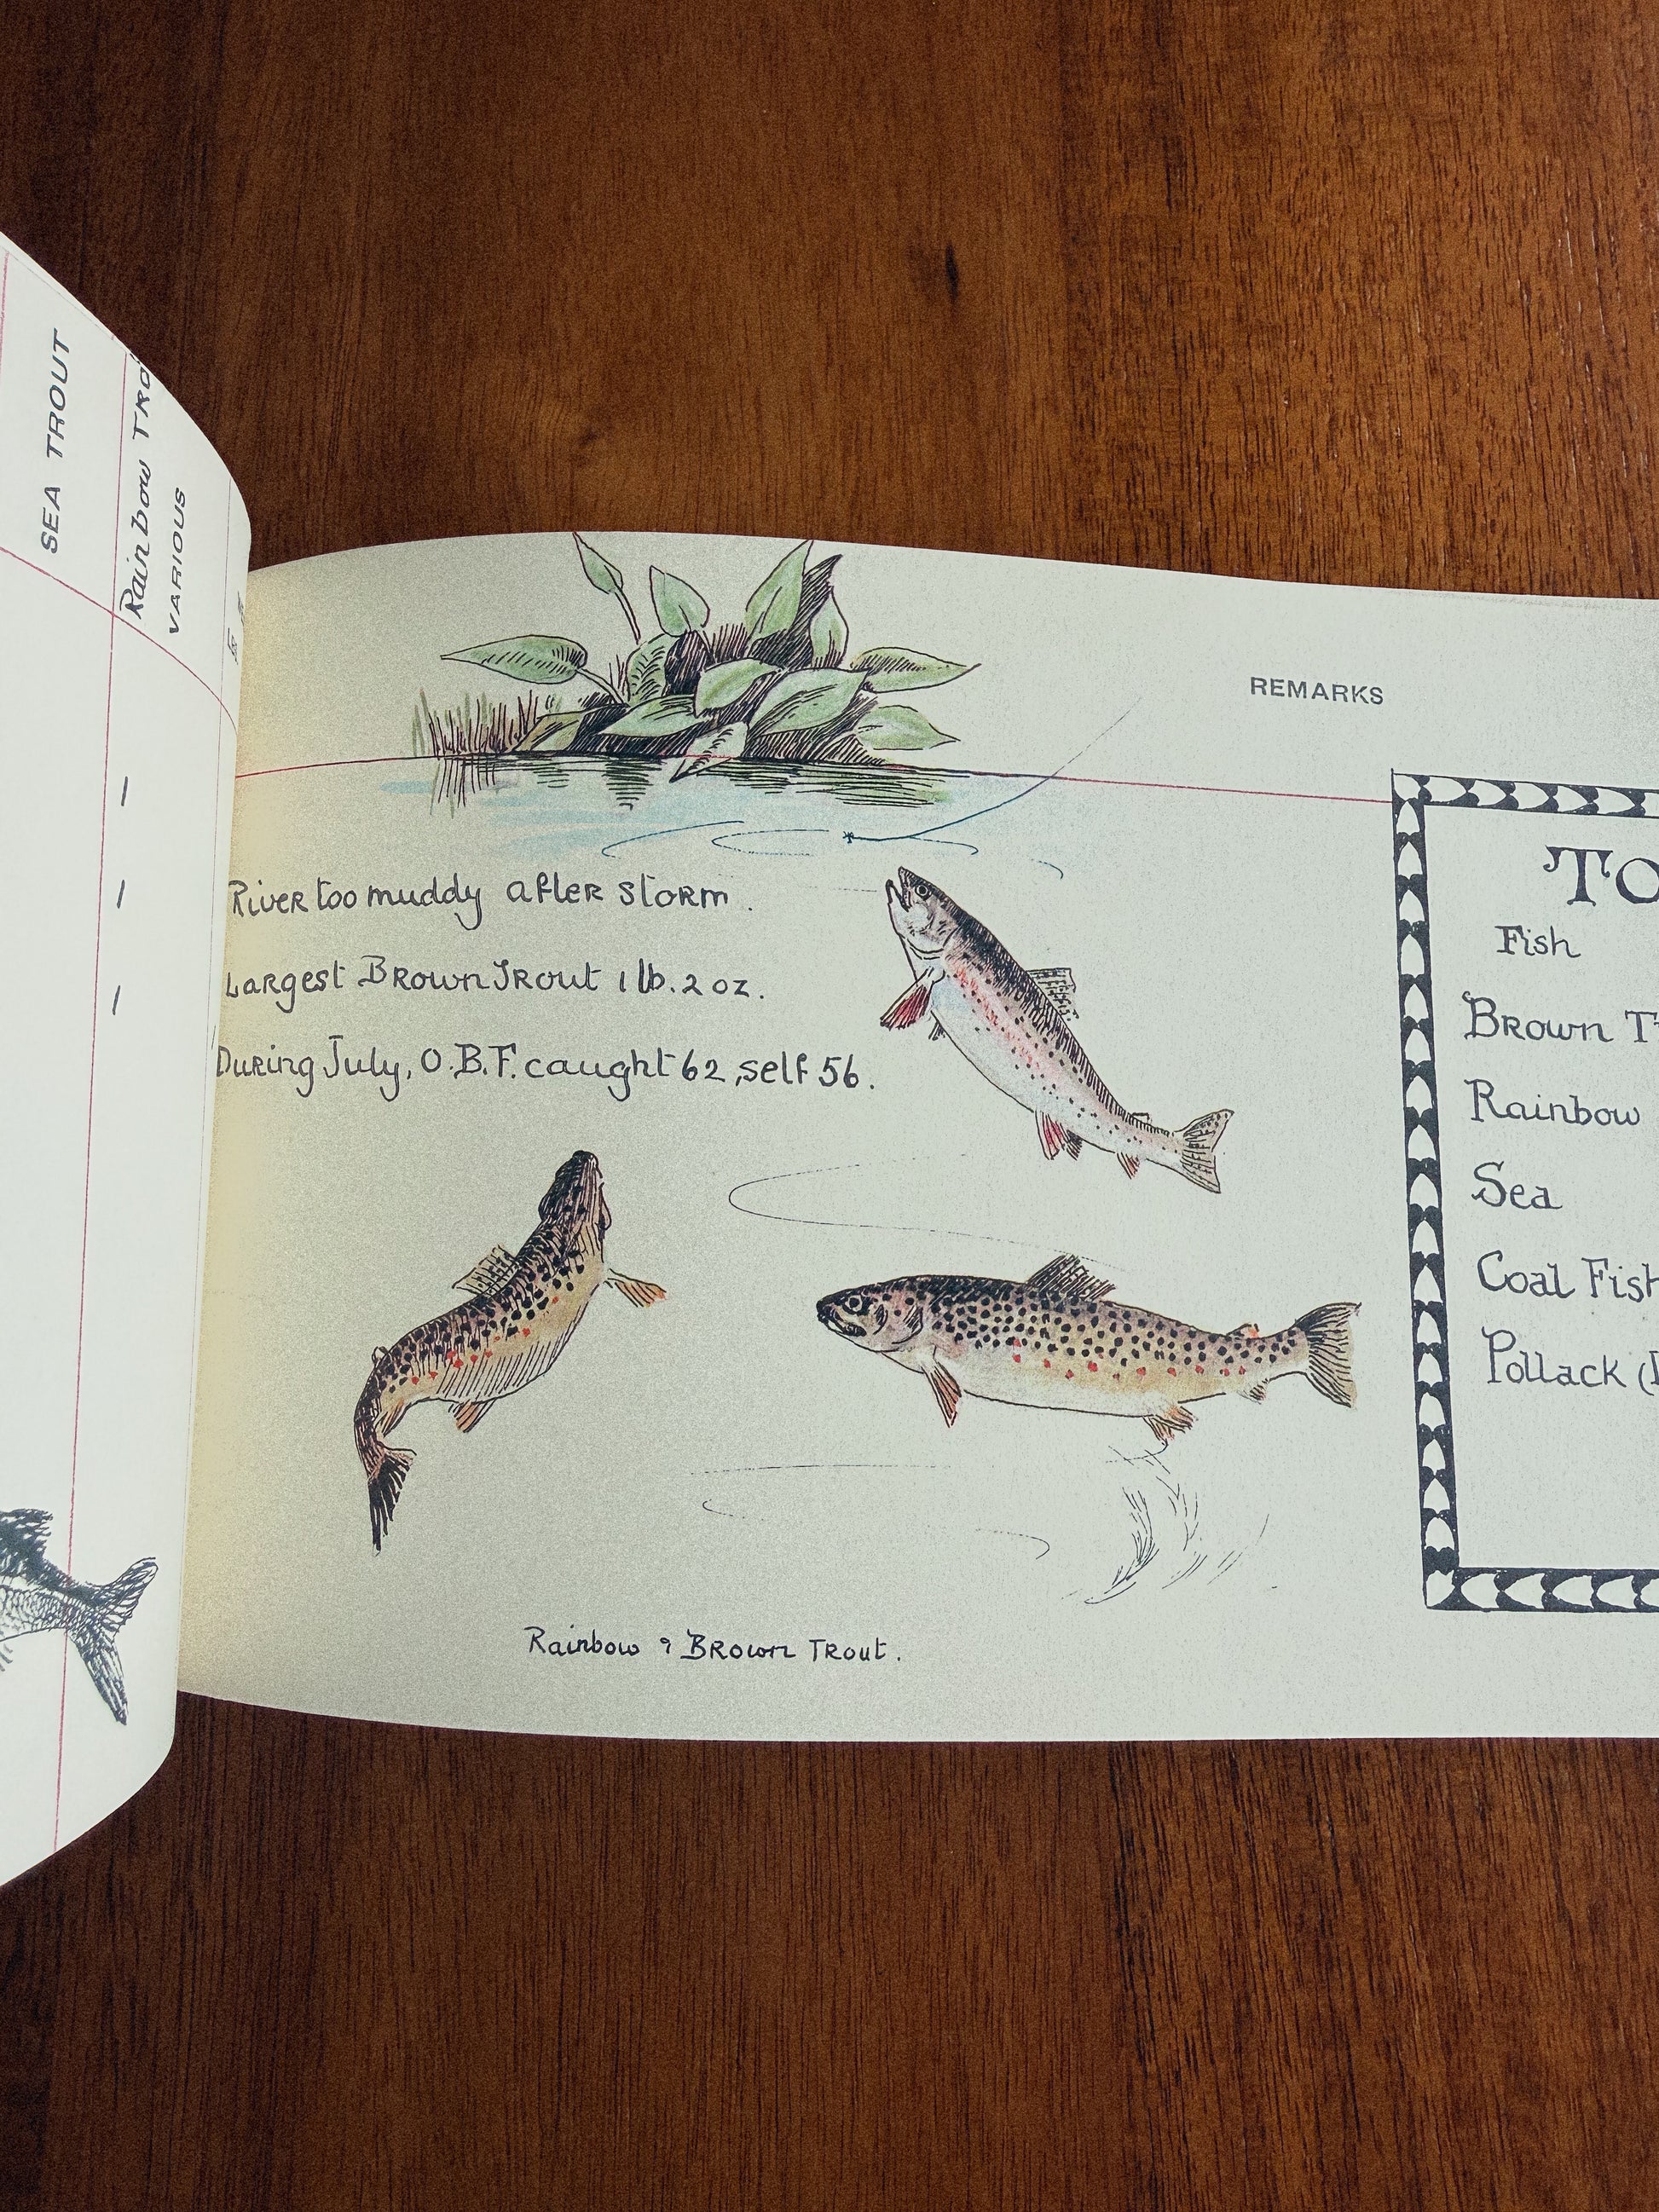 SEA TROUT
Rainbow
VARIOUS
REMARKS
River too muddy after storm.
Largest Brown Trout 1 lb. 2 oz.
During July, O.B.F. caught 62, self 56.
Rainbow & Brown Trout.
Fish
Brown
Rainbow
Sea
Coal Fish
Pollack